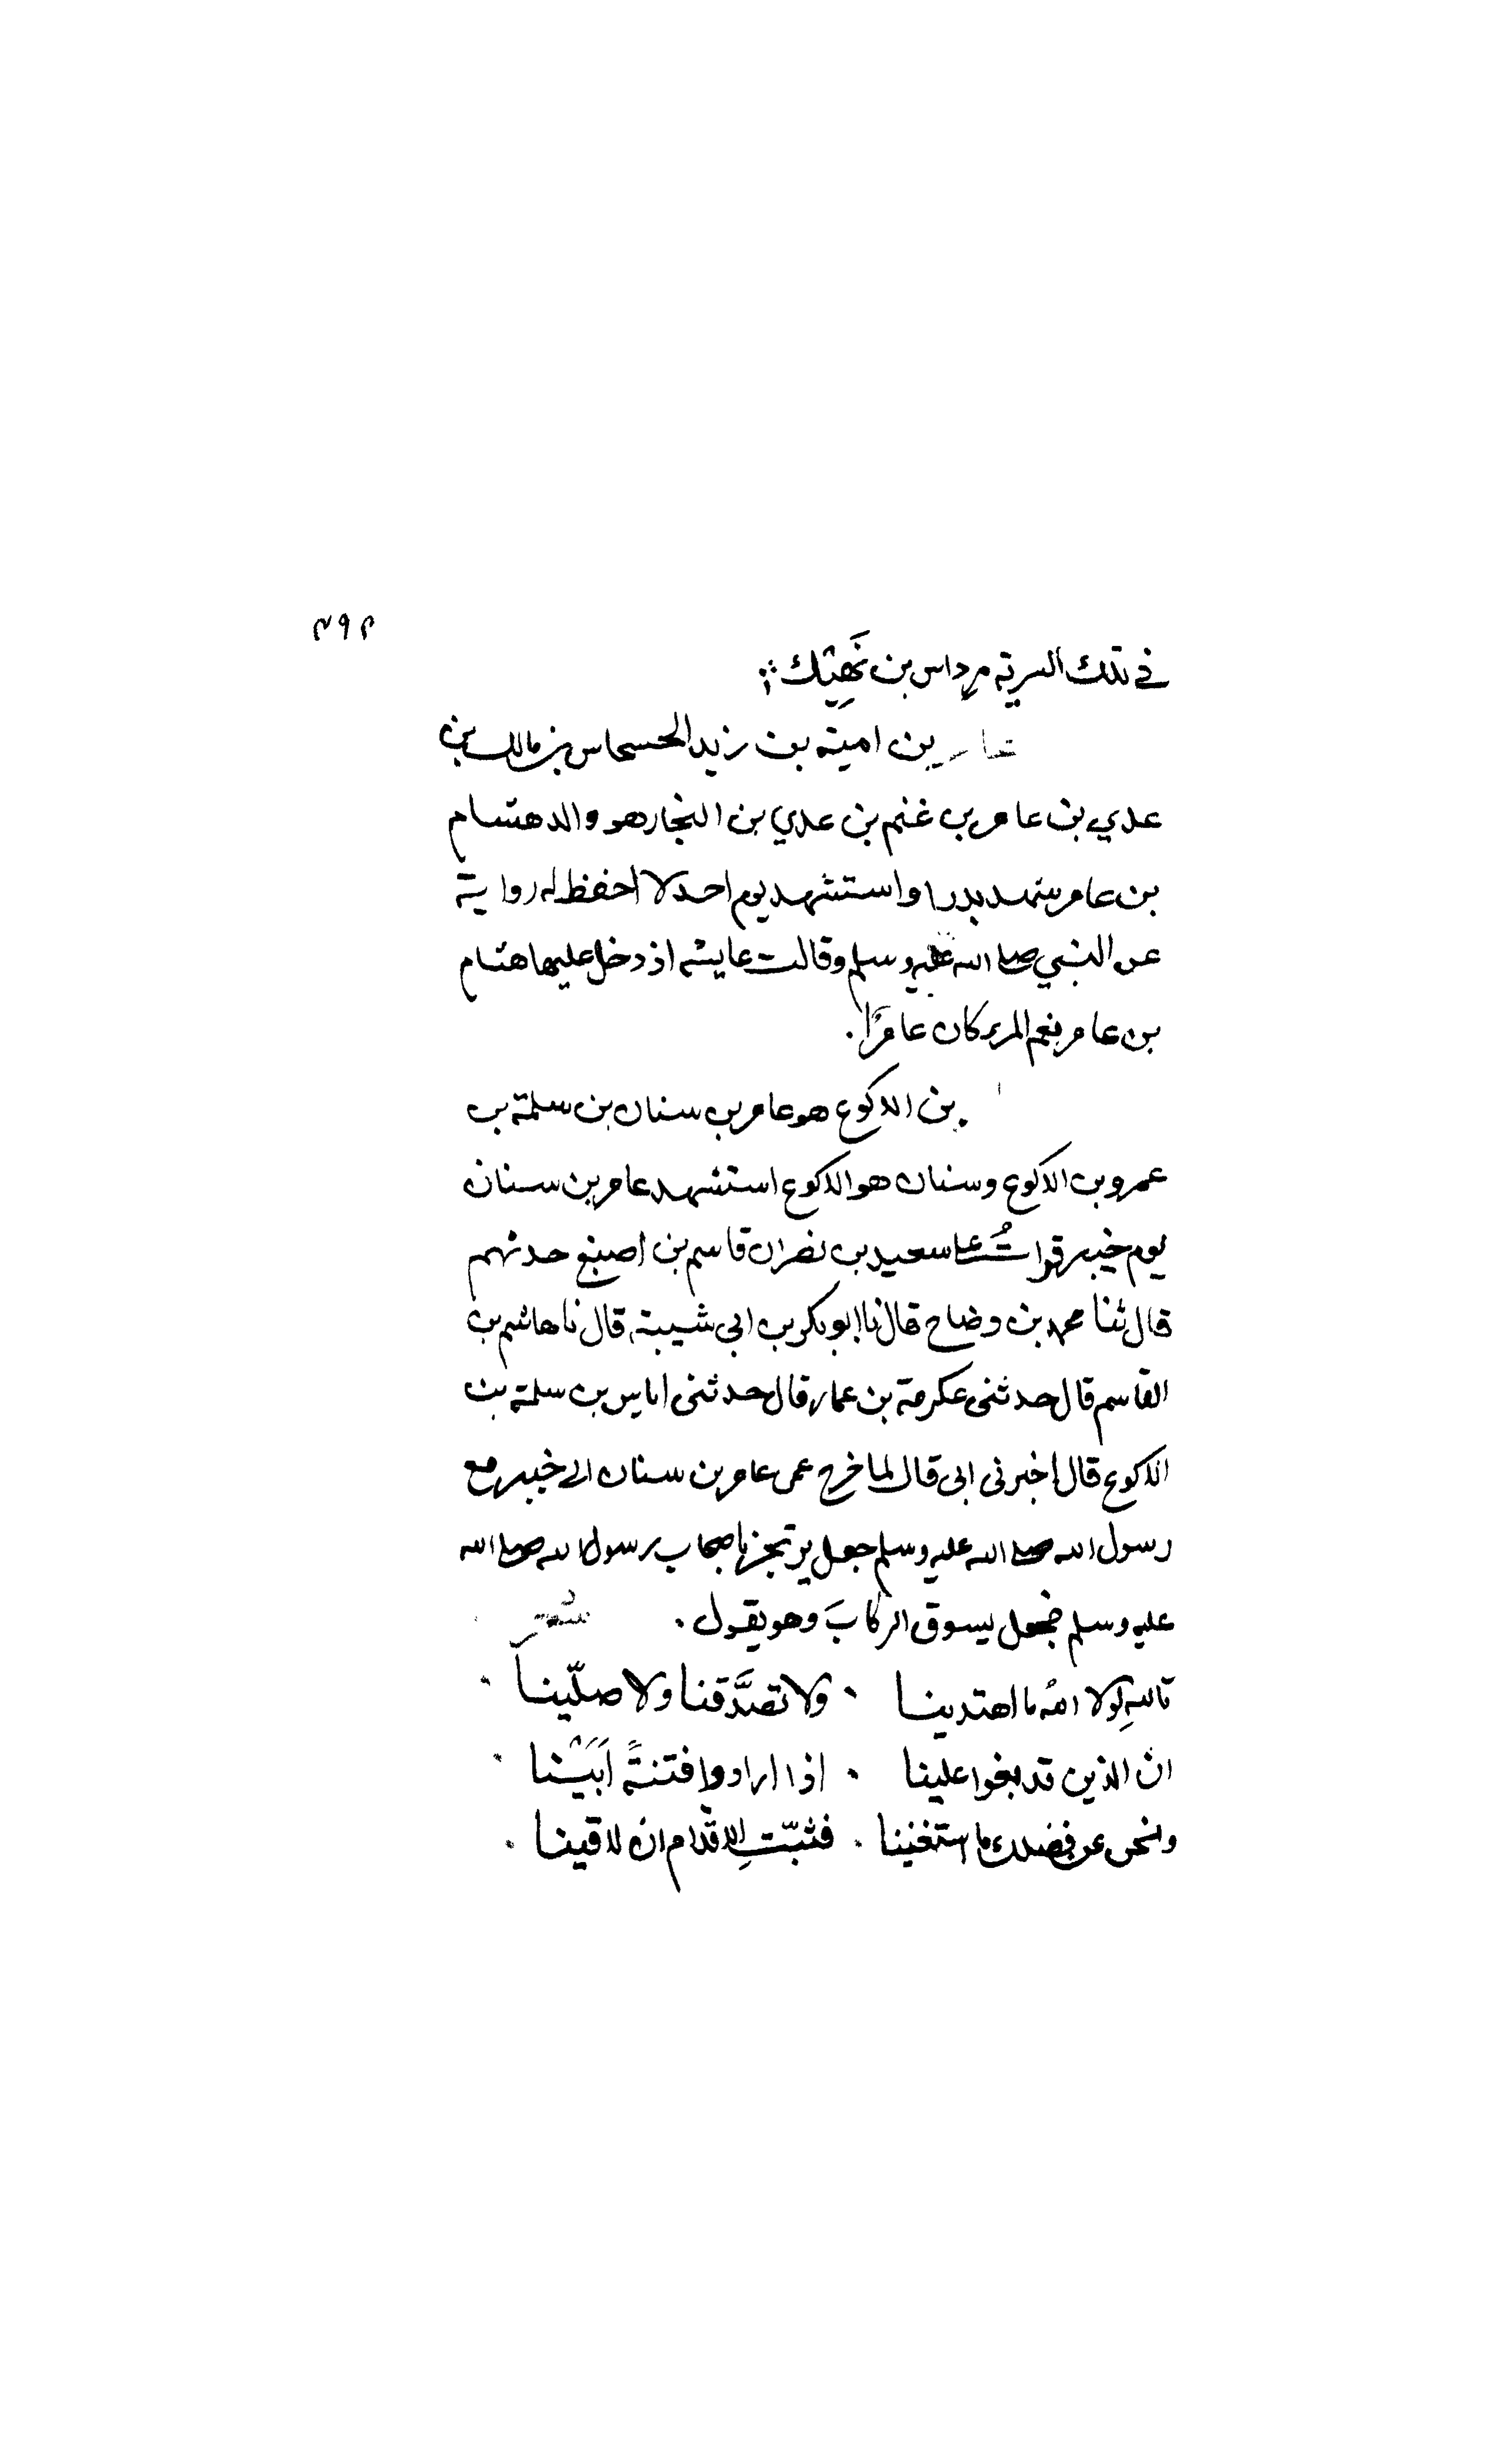 ٣٩٣
في تلك السرية مرداس بن نَهِيْك
عامر بن امية بن زيد الحسحاس بن مالك بن
عدي بن عامر بن غنم بن عدي بن النجار هو والد هشام
بن عامر شهد بدرا واستشهد يوم احد لا احفظ له رواية
عن النبي صلى الله عليه وسلم وقالت عايشه اذ دخل عليها هشام
بن عامر نعم المرء كان عامرًا.
بن الاكوع هو عامر بن سنان بن سلمة بن
عمرو بن الاكوع وسنان هو الاكوع استشهد عامر بن سنان
يوم خيبر قرات على سعيد بن نصر ان قاسم بن اصبغ حدثهم
قال ثنا محمد بن وضاح قال نا ابو بكر بن ابى شيبة قال نا هاشم بن
القاسم قال حدثنى عكرمة بن عمار قال حدثنى اياس بن سلمة بن
الاكوع قال اخبرنى ابى قال لما خرج عمى عامر بن سنان الى خيبر مع
رسول الله صلى الله عليه وسلم جعل يرتجز باصحاب رسول الله صلى الله
عليه وسلم فجعل يسوق الركابَ وهو يقول . شعر
تاللهِ لولا اللهُ ما اهتدينا . ولا تصَدَّقنا ولا صلّينا
ان الذين قد بغوا علينا . اذا ارادوا فتنةً اَبَيْنا
ونحن عن فضلك ما استغنينا . فثبّتِ الاقدام ان لاقينا .